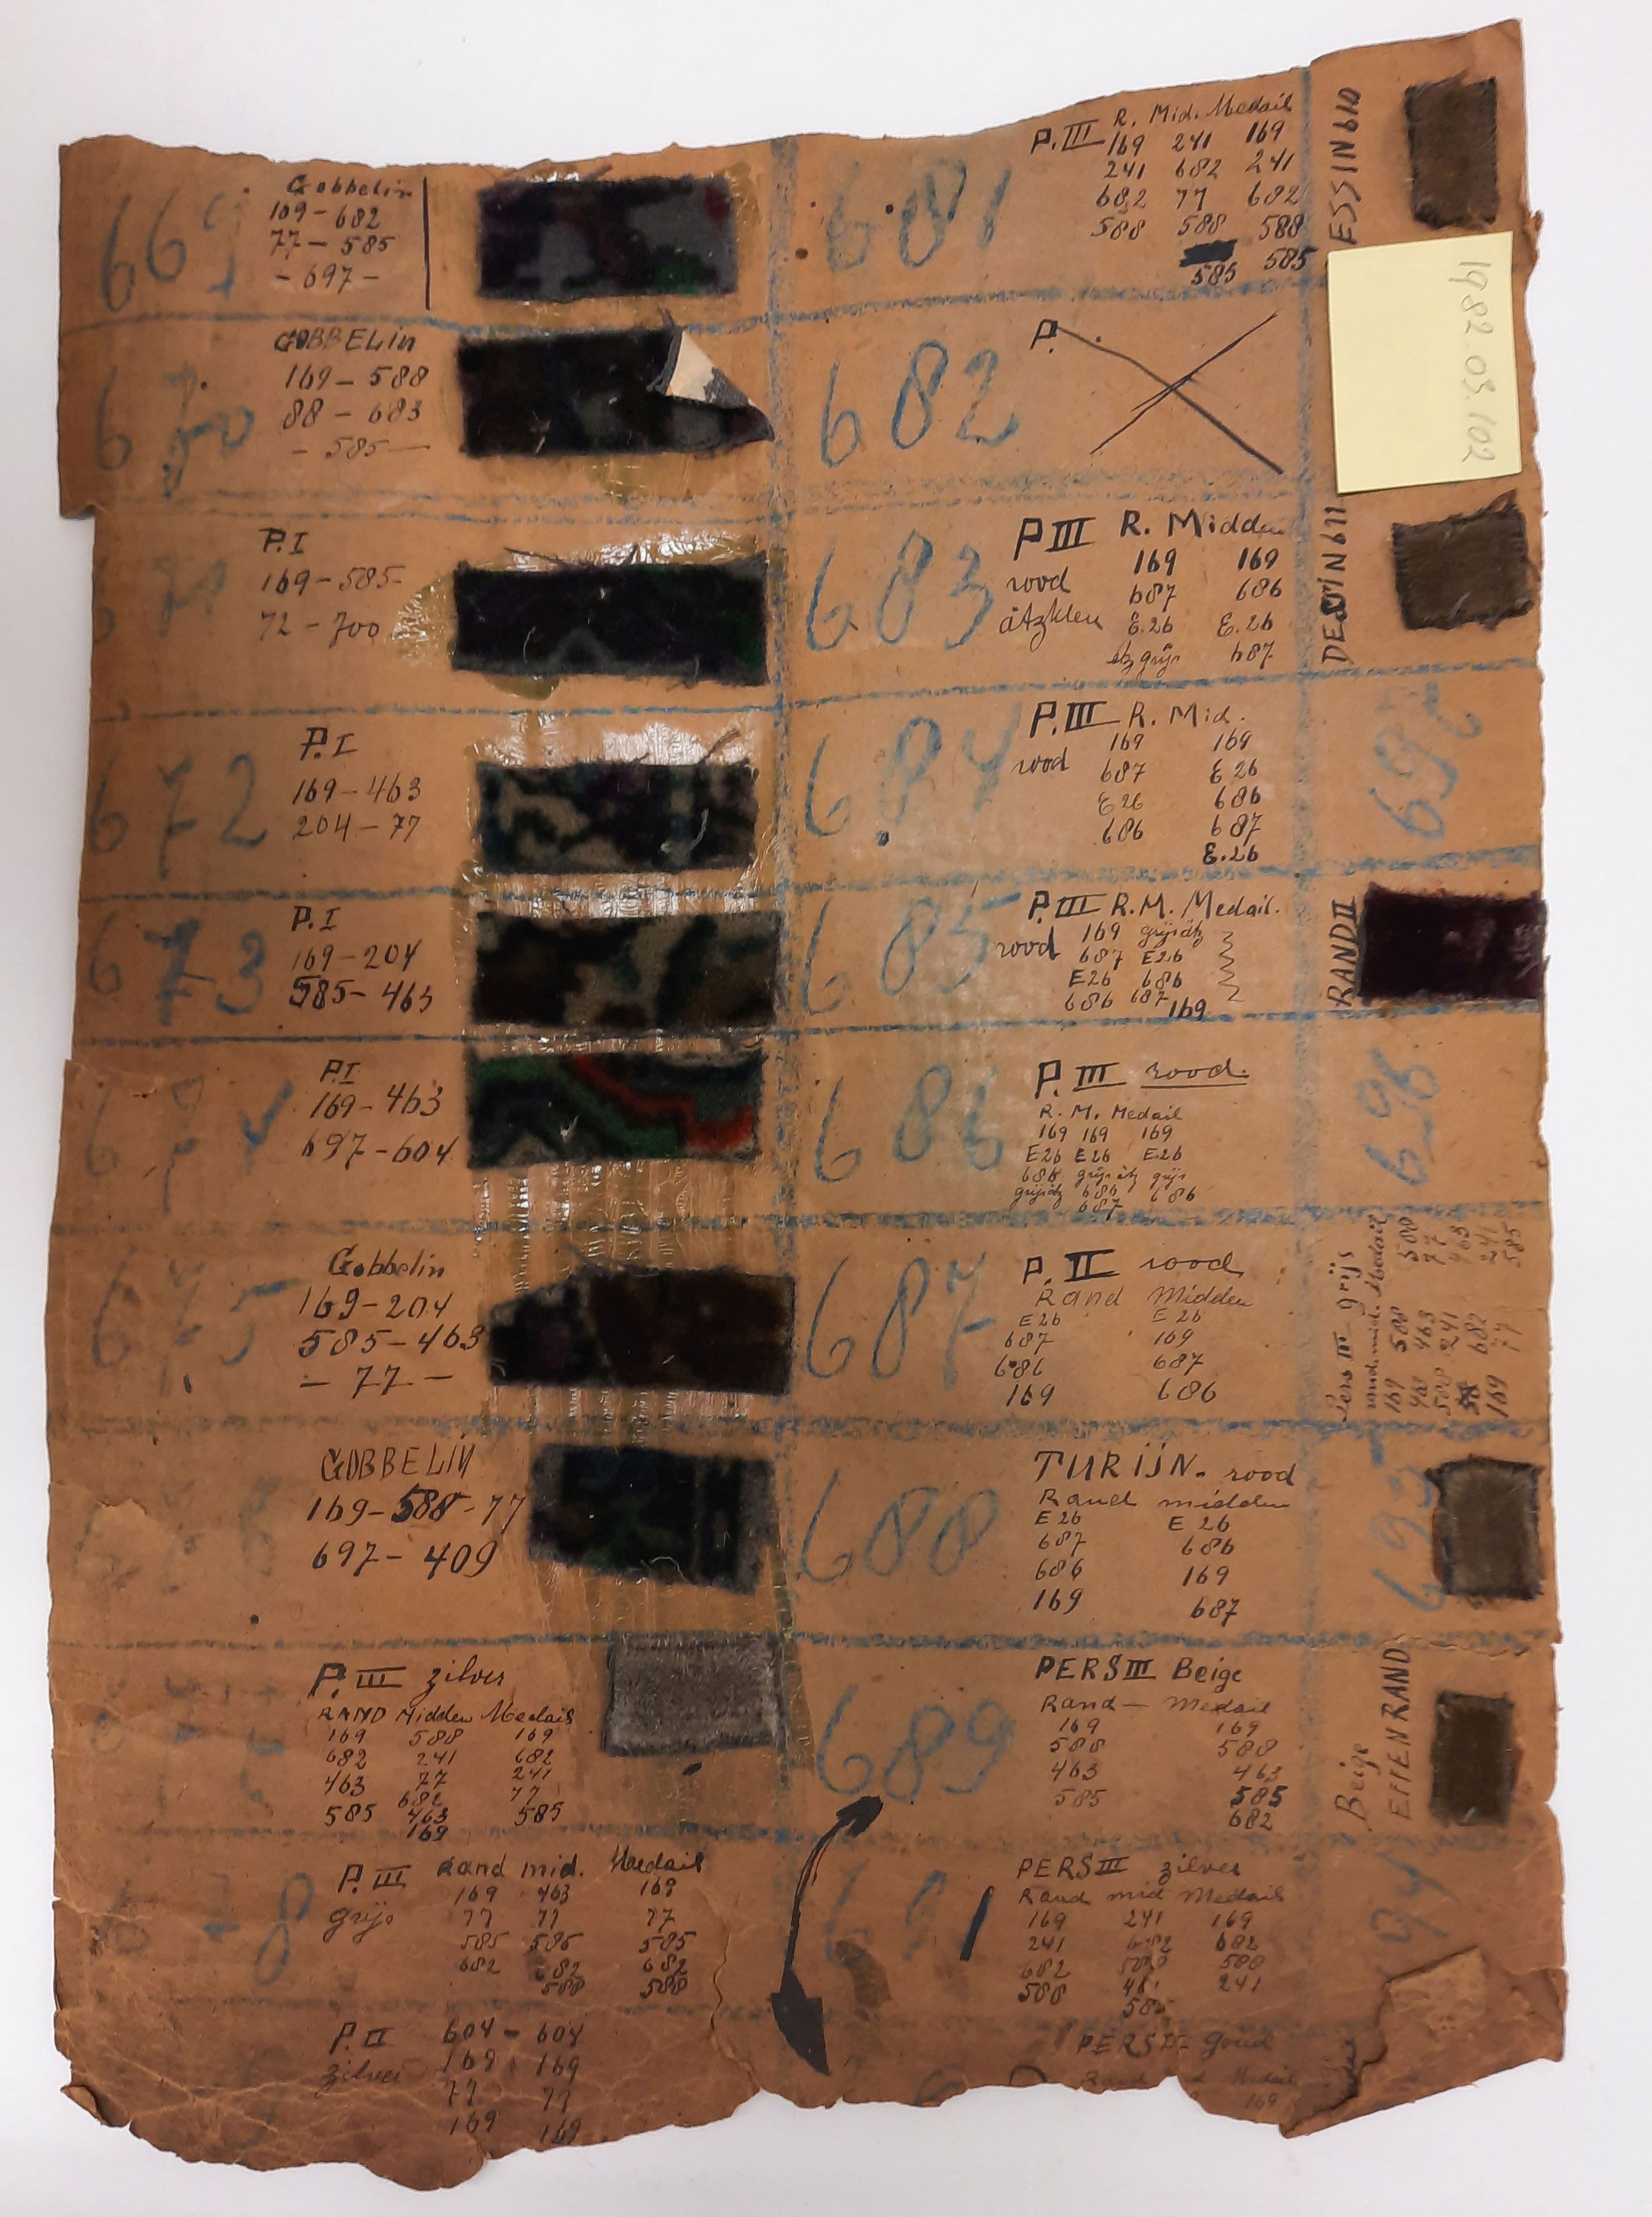 669
Gobbelin
169-682
77-585
-697-
670
GOBBELin
169-588
88-683
-585-
P.I
169-585-
72-700
672
P.I
169-463
204-77
673
P.I
169-204
585-463
P.I
169-463
697-604
675
Gobbelin
169-204
585-463
-77-
GOBBELIN
169-588-77
697-409
P.III zilver
RAND Midden Medail
169 588 169
682 241 682
463 77 241
682 77
585 463 585
169
P.III Rand mid. Medail
169 463 169
grijs 77 77 77
585 585 585
682 682 682
588 588
P.II 604-604
zilver 169 169
77 77
169 169
681
P.III R. Mid. Medail
169 241 169
241 682 241
682 77 682
588 588 588
585 585
682
P.
683
P III R. Midden
169 169
rood 687 686
ätzkleu E.26 E.26
etz grijs 687
684
P.III R. Mid.
169 169
rood 687 E26
E26 686
686 687
E.26
685
P.III R.M. Medail.
rood 169 grijsätz
687 E26
E26 686
686 687 169
686
P.III rood.
R. M. Medail
169 169 169
E26 E26 E26
686 grijs ätz grijs
grijsätz 686 686
687
687
P. II rood
Rand Midden
E26 E26
687 169
686 687
169 686
688
TURIJN. rood
Rand midden
E26 E26
687 686
686 169
169 687
689
PERS III Beige
Rand - Medail
169 169
588 588
463 463
585 585
682
691
PERS III zilver
Rand mid Medail
169 241 169
241 682 682
682 588 588
588 461 241
585
PERS II- goud
Rand Medail
169
ESSIN 610
1982.03.102
DESSIN 611
692
RAND II
696
Pers III grijs
rand. mid. Medail
169 588 588
463 463 77
588 241 463
682 241
169 77 585
695
Beige
EFFEN RAND
94